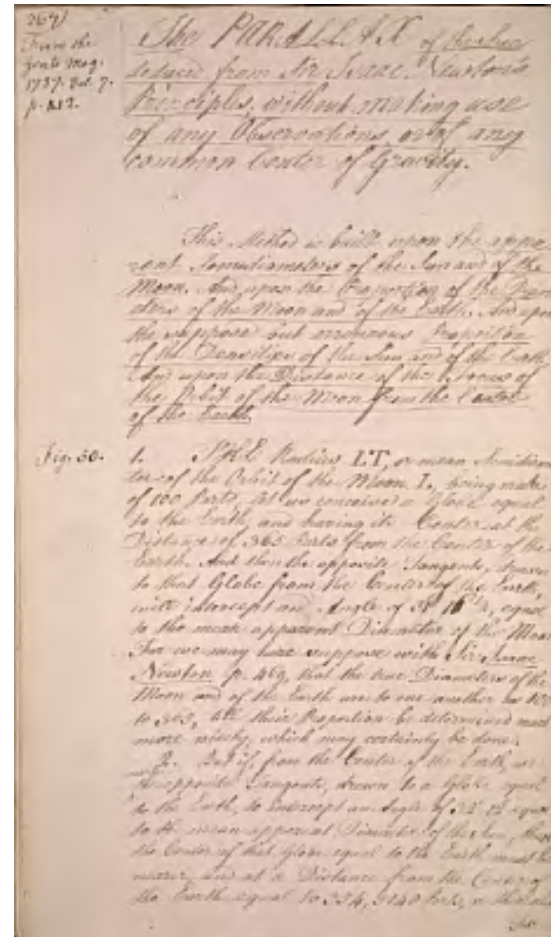 267)
From the
Gents Mag.
1737. Vol. 7.
p. 412.
The PARALLAX of the Sun
deduced from Sir Isaac Newton's
Principles, without making use
of any Observations, or of any
common Center of Gravity.
This Method is built upon the appa-
rent Semidiameters of the Sun and of the
Moon. And upon the Proportion of the Diame-
ters of the Moon and of the Earth. And upon
the suppose but erroneous Proportion
of the Densities of the Sun and of the Earth
And upon the Distance of the Focus of
the Orbit of the Moon from the Center
of the Earth
Fig. 50.
1. THE Radius LT, or mean Semidiam-
ter of the Orbit of the Moon L, being made
of 100 Parts, let us conceive a Globe equal
to the Earth, and having its Center at the
Distance of 365 Parts from the Center of the
Earth. And then the opposite Tangents, drawn
to that Globe from the Center of the Earth,
will intercept an Angle of equal
to the mean apparent Diameter of the Moon
For we may here suppose with Sir Isaac
Newton p. 469, that the true Diameters of the
Moon and of the Earth are to one another as 100
to 365, till their Proportion be determined much
more nicely, which may certainly be done.
2. But if, from the Center of the Earth, we
opposite Tangents, drawn to a Globe equal
to the Earth, to intercept an Angle of equal
to the mean apparent Diameter of the Sun, then
the Center of that Globe equal to the Earth must be
nearer, and at a Distance from the Center of
the Earth equal to Parts,